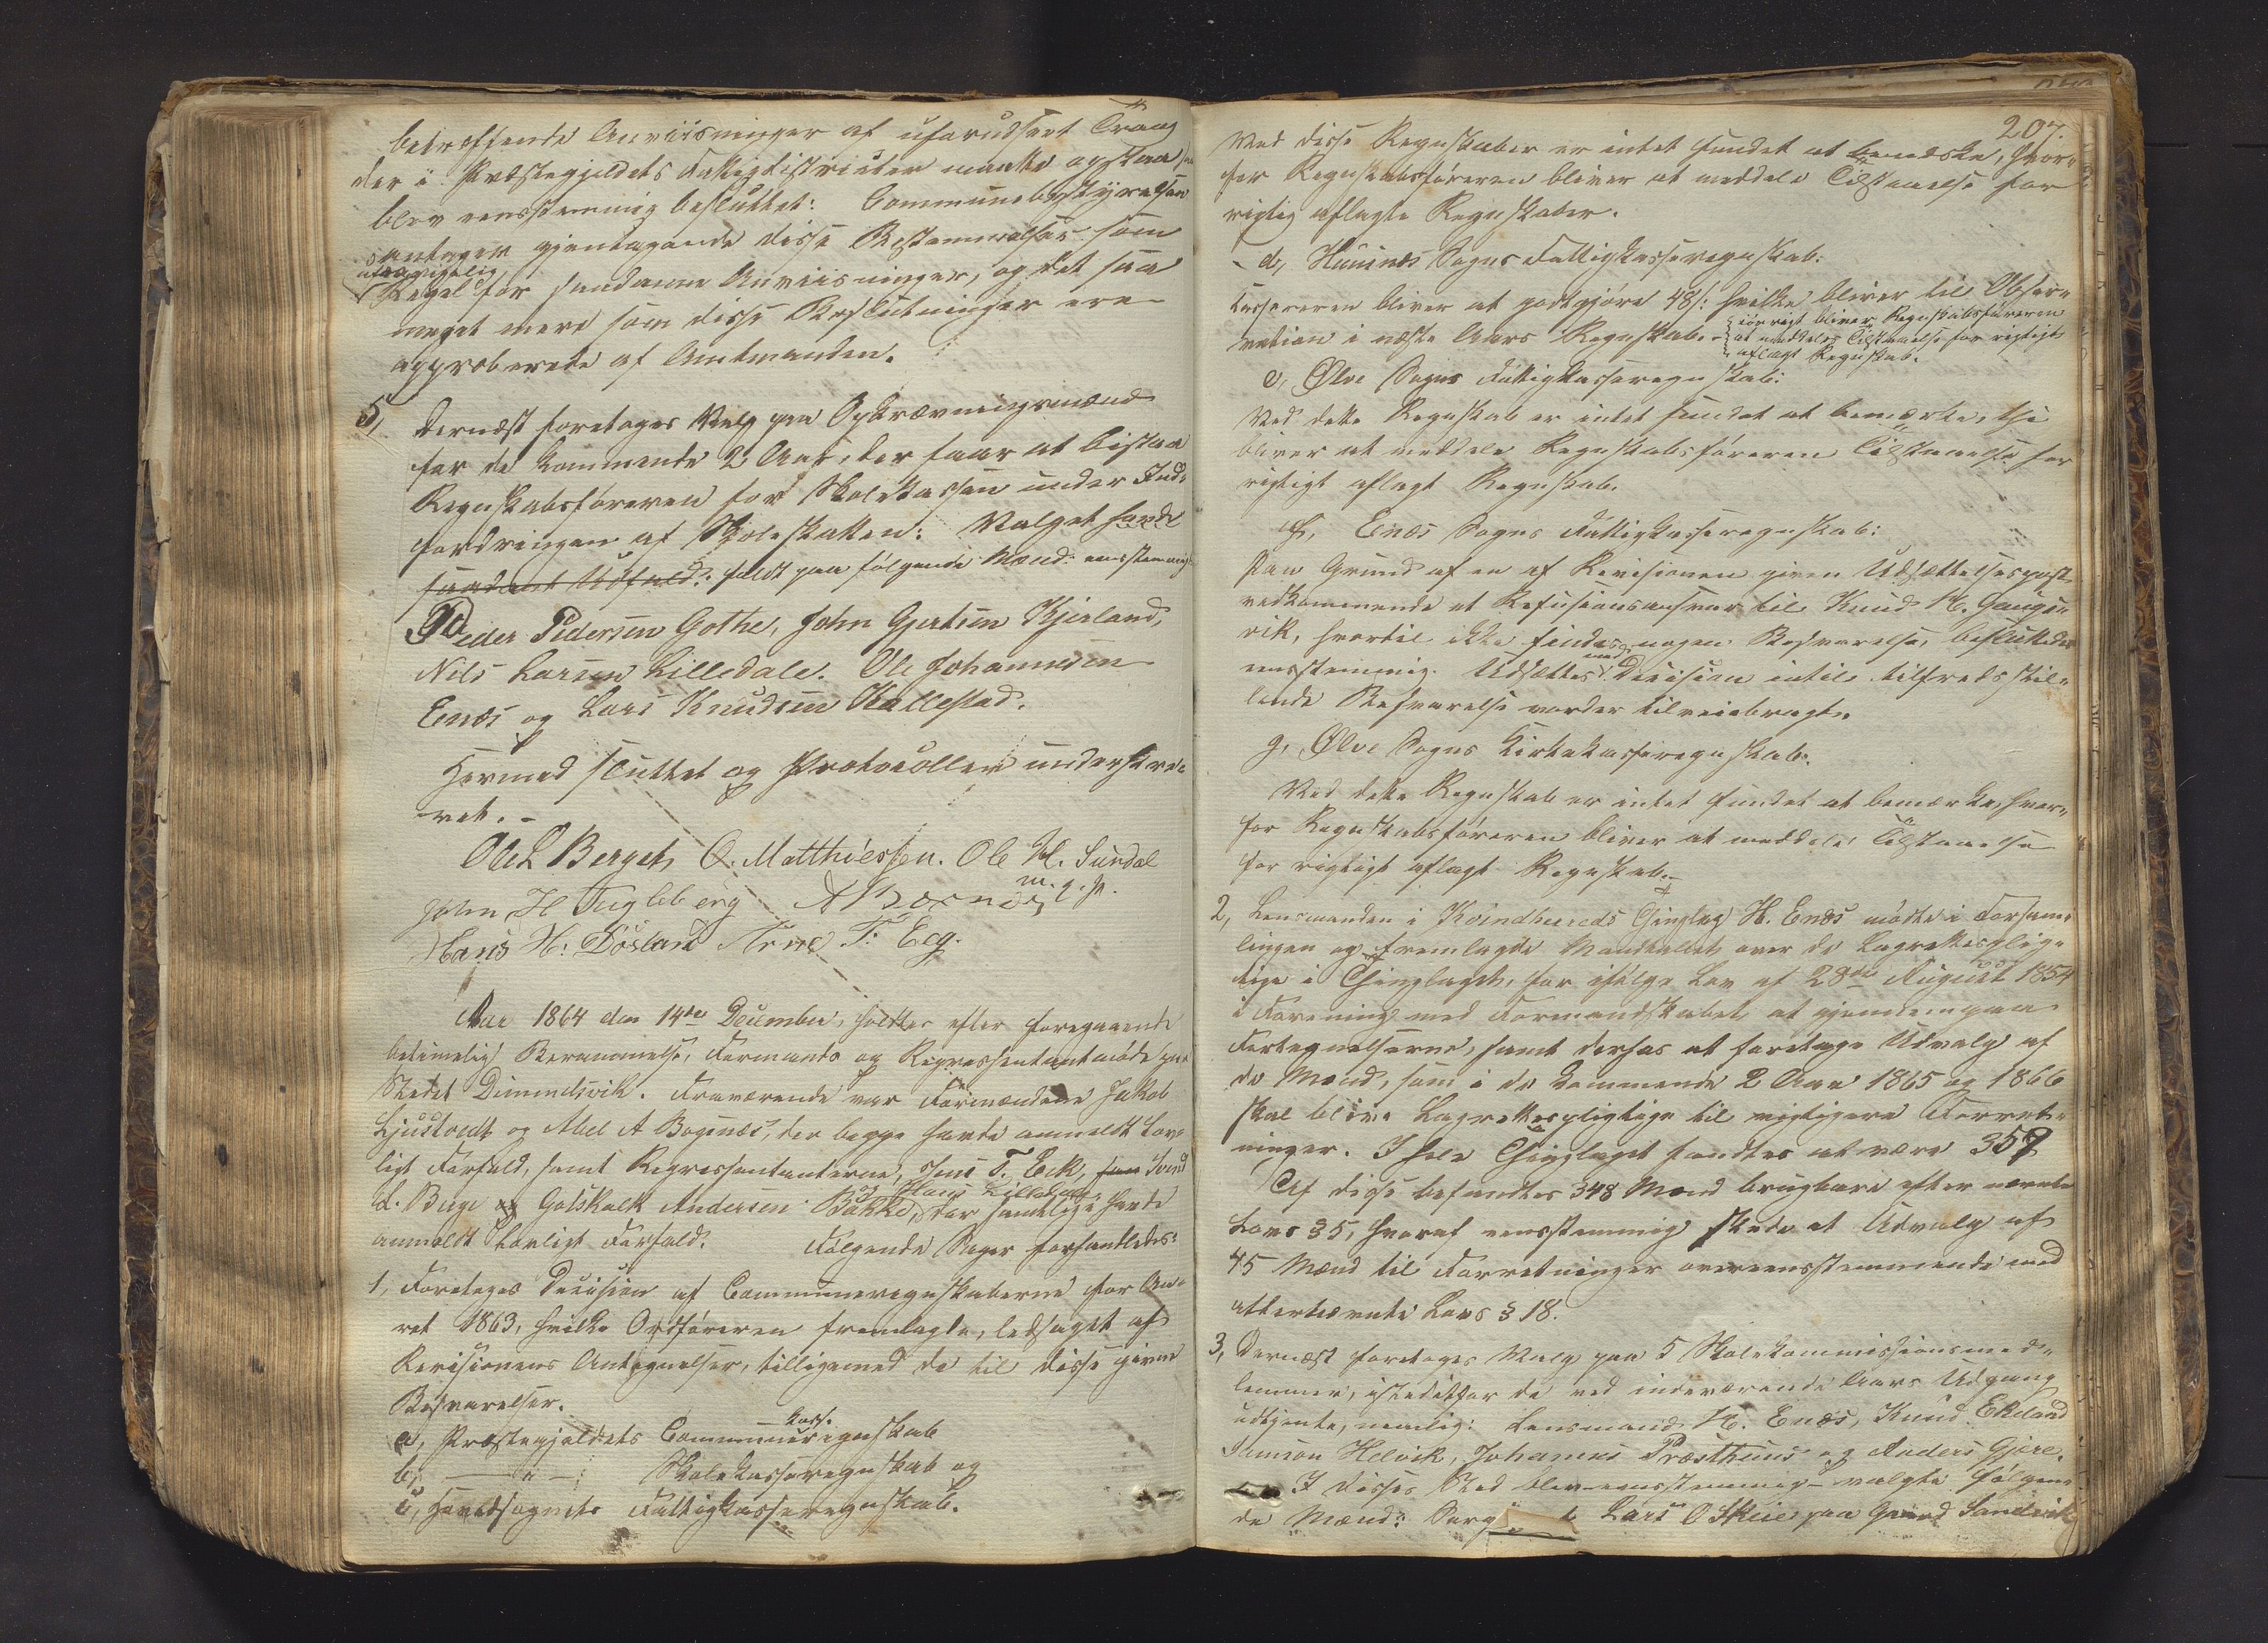 betræffende Anviisninger af uforudseet Trang
der i Præstegjeldets Fattigdistricter maatte opstaa,
blev eensstemmig besluttet: Communebestyrelsen
antager gjentagende disse Bestemmelser som
ufravigelig
Regel for saadanne Anviisninger, og det saa
meget mere som disse Beslutninger ere
approberede af Amtmanden.
5, Dernæst foretoges Valg paa Opkrævningsmænd
for de kommende 2 Aar, der faar at bistaa
Regnskabsføreren for Skolekassen under Ind-
fordringen af Skoleskatten: Valget havde
saadant Udfald: faldt paa følgende Mænd: eensstemmig
Peder Pedersen Gothe, John Gjertsen Kjerland,
Nils Larsen Lilledale. Ole Johannesen
Enæs og Lars Knudsen Hallestad.
Hermed sluttet og Protocollen underskre-
vet. -
Ole L Berget, O. Matthiessen. Ole H. Sundal
m. p. P.
John H Fugleberg A Bosnæs
Hans H: Døsland Arne T: Eeg.
Aar 1864 den 14de December, holdtes efter foregaaende
betimelig Berammelse, Formands og Repræsentantmøde paa
Stedet Dimmelsvik. Fraværende var Formændene Jakob
Ljustvedt og Abel A Bogenæs, der begge havde anmeldt lov-
ligt Forfald, samt Repræsentanterne, Jens T. Eek, Svend
og Hans Lilledal
L. Buge og Gotskalk Andersen Bakke, der samtlige havde
anmeldt lovligt Forfald. Følgende Sager forhandledes:
1, Foretoges Decision af Communeregnskaberne for Aa-
ret 1863, hvilke Ordføreren fremlagte, ledsaget af
Revisionens Antegnelser, tilligemed de til disse givne
Besvarelser.
kasse
a, Præstegjeldets Communeregnskab
b, — " — Skolekasseregnskab og
c, Hovedsognets Fattigkasseregnskab.
207.
Ved disse Regnskaber er intet fundet at bemærke, hvor-
for Regnskabsføreren bliver at meddele Tilstaaelse for
rigtig aflagte Regnskaber.
d, Huusnæs Sogns Fattigkasseregnskab:
Kassereren bliver at godtgjøre 48 s: hvilke bliver til Obser-
vation i næste Aars Regnskab. - iøvrigt bliver Regnskabsføreren
at meddeles Tilstaaelse for rigtigt
aflagt Regnskab.
e, Ølve Sogns Fattigkasseregnskab:
Ved dette Regnskab er intet fundet at bemærke, thi
bliver at meddele Regnskabsføreren Tilstaaelse for
rigtigt aflagt Regnskab.
f, Enæs Sogns Fattigkasseregnskab:
Paa Grund af en af Revisionen given Udsættelsespost
vedkommende et Refusionsansvar til Knud H. Gangs-
vik, hvortil ikke findes nogen Besvarelse, besluttedes
med
eensstemmig: Udsættes Decision intil tilfredsstil-
lende Besvarelse vorder tilveiebragt.
g, Ølve Sogns Kirkekasseregnskab.
Ved dette Regnskab er intet fundet at bemærke, hvor-
for Regnskabsføreren bliver at meddele Tilstaaelse
for rigtigt aflagt Regnskab. -
2, Lensmanden i Kvindherreds Thinglag H. Enæs mødte i Forsam-
lingen og fremlagde Mandtallet over de Lagrettespligt-
ige i Thinglaget, for ifølge Lov af 28de August 1854
i Forening med Formandskabet at gjennemgaa
Fortegnelserne, samt derhos at foretage Udvalg af
de Mænd, som i de kommende 2 Aar 1865 og 1866
skal blive Lagrettespligtige til vigtigere Forret-
ninger. I hele Thinglaget fandtes at være 357
Af disse befandtes 348 Mænd brugbare efter nævnte
Lovs § 5, hvoraf eensstemmig skede et Udvalg af
45 Mænd til Forretninger overeensstemmende med
atternævnte Lovs § 18.
3, Dernæst foretoges Valg paa 5 Skolekommissionsmed-
lemmer, istedetfor de ved indeværende Aars Udgang
udtjente, nemlig: Lensmand H. Enæs, Knud Ekeland
Simson Helvik, Johannes Præsthuus og Anders Gjære.
I disses Sted blev eensstemmig valgte følgen-
de Mænd: Lars O Skeie paa Grund Sandvik